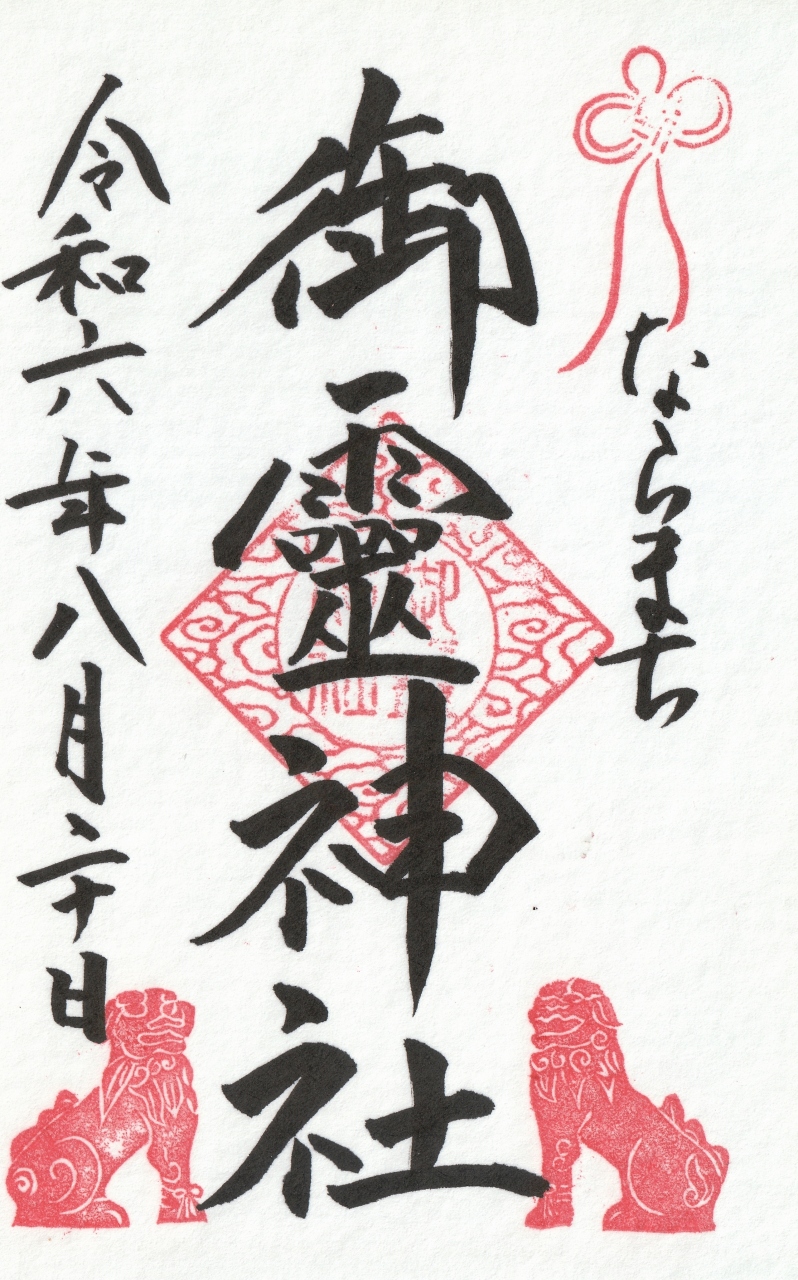 ならまち
御靈神社
令和六年八月二十日